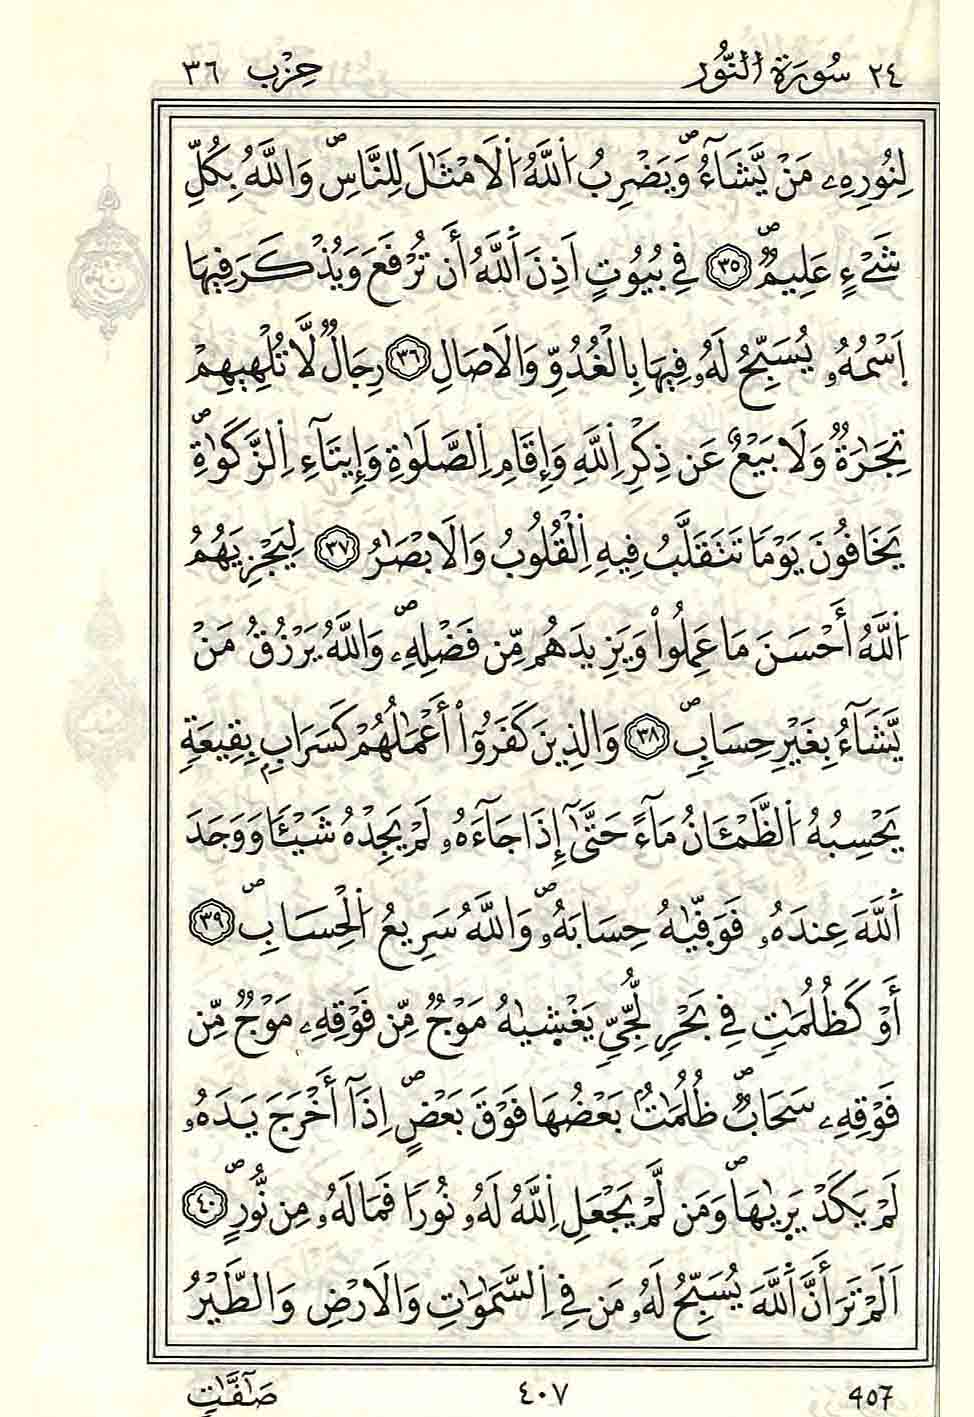 ٢٤ سُورَةُ النُّور حِزْب ٣٦
لِنُورِهِۦ مَنْ يَّشَآءُ وَيَضْرِبُ اُ۬للَّهُ اُ۬لَامْثَٰلَ لِلنَّاسِۖ وَاللَّهُ بِكُلِّ
شَےْءٍ عَلِيمٌۖ ٣٥ فِے بُيُوتٍ اَذِنَ اَ۬للَّهُ أَن تُرْفَعَ وَيُذْكَرَ فِيهَا
اَ۪سْمُهُۥ يُسَبِّحُ لَهُۥ فِيهَا بِالْغُدُوِّ وَالَاصَالِ ٣٦ رِجَالٞ لَّا تُلْهِيهِمْ
تِجَٰرَةٞ وَلَا بَيْعٌ عَن ذِكْرِ اِ۬للَّهِ وَإِقَامِ اِ۬لصَّلَوٰةِ وَإِيتَآءِ اِ۬لزَّكَوٰةِۖ
يَخَافُونَ يَوْماٗ تَتَقَلَّبُ فِيهِ اِ۬لْقُلُوبُ وَالَابْصَٰرُ ٣٧ لِيَجْزِيَهُمُ
اُ۬للَّهُ أَحْسَنَ مَا عَمِلُواْ وَيَزِيدَهُم مِّن فَضْلِهِۦۖ وَاللَّهُ يَرْزُقُ مَنْ
يَّشَآءُ بِغَيْرِ حِسَابٖۖ ٣٨ وَالذِينَ كَفَرُوٓاْ أَعْمَٰلُهُمْ كَسَرَابِۢ بِقِيعَةٖ
يَحْسِبُهُ اُ۬لظَّمْـَٔانُ مَآءً حَتَّىٰٓ إِذَا جَآءَهُۥ لَمْ يَجِدْهُ شَيْـٔاٗ وَوَجَدَ
اَ۬للَّهَ عِندَهُۥ فَوَفّ۪يٰهُ حِسَابَهُۥۖ وَاللَّهُ سَرِيعُ اُ۬لْحِسَابِۖ ٣٩
أَوْ كَظُلُمَٰتٖ فِے بَحْرٖ لُّجِّيّٖ يَغْش۪يٰهُ مَوْجٞ مِّن فَوْقِهِۦ مَوْجٞ مِّن
فَوْقِهِۦ سَحَابٞۖ ظُلُمَٰتُۢ بَعْضُهَا فَوْقَ بَعْضٍۖ اِذَآ أَخْرَجَ يَدَهُۥ
لَمْ يَكَدْ يَر۪يٰهَاۖ وَمَن لَّمْ يَجْعَلِ اِ۬للَّهُ لَهُۥ نُوراٗ فَمَا لَهُۥ مِن نُّورٍۖ ٤٠
اَلَمْ تَرَ أَنَّ اَ۬للَّهَ يُسَبِّحُ لَهُۥ مَن فِے اِ۬لسَّمَٰوَٰتِ وَالَارْضِ وَالطَّيْرُ
صَٰٓفَّٰتٖ ٤٠٧ 407